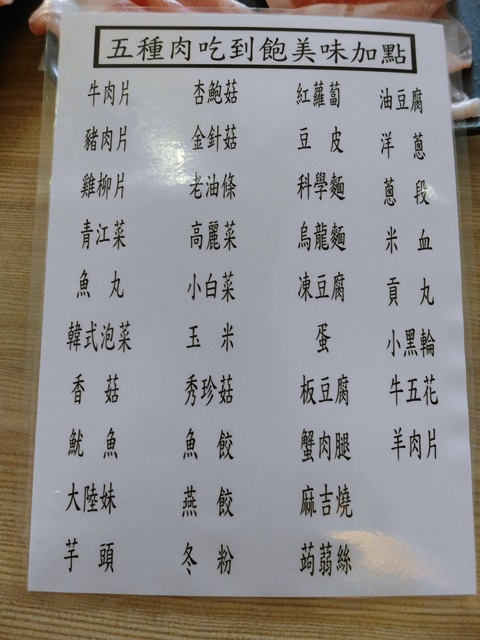 五種肉吃到飽美味加點
牛肉片
豬肉片
雞柳片
青江菜
魚丸
韓式泡菜
香菇
魷魚
大陸妹
芋頭
杏鮑菇
金針菇
老油條
高麗菜
小白菜
玉米
秀珍菇
魚餃
燕餃
冬粉
紅蘿蔔
豆皮
科學麵
烏龍麵
凍豆腐
蛋
板豆腐
蟹肉腿
麻吉燒
蒟蒻絲
油豆腐
洋蔥
蔥段
米血
貢丸
小黑輪
牛五花
羊肉片